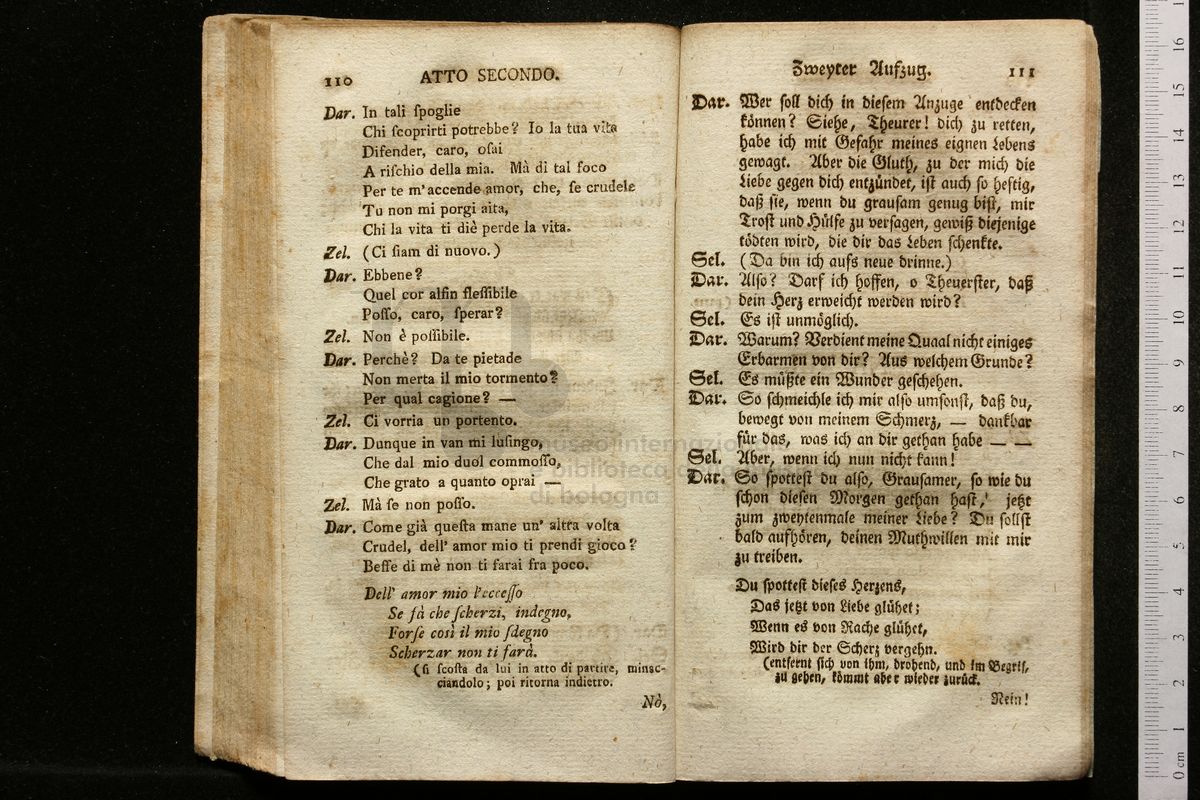 110 ATTO SECONDO.
Dar. In tali ſpoglie
Chi ſcoprirti potrebbe? Io la tua vita
Difender, caro, oſai
A riſchio della mia. Mà di tal foco
Per te m'accende amor, che, ſe crudele
Tu non mi porgi aita,
Chi la vita ti diè perde la vita.
Zel. (Ci ſiam di nuovo.)
Dar. Ebbene?
Quel cor alfin fleſſibile
Poſſo, caro, ſperar?
Zel. Non è poſſibile.
Dar. Perchè? Da te pietade
Non merta il mio tormento?
Per qual cagione? —
Zel. Ci vorria un portento.
Dar. Dunque in van mi luſingo,
Che dal mio duol commoſſo,
Che grato a quanto oprai —
Zel. Mà ſe non poſſo.
Dar. Come già queſta mane un' altra volta
Crudel, dell' amor mio ti prendi gioco?
Beffe di mè non ti farai fra poco.
Dell' amor mio l'ecceſſo
Se fà che ſcherzi, indegno,
Forſe così il mio ſdegno
Scherzar non ti farà.
(ſi ſcoſta da lui in atto di partire, minac-
ciandolo; poi ritorna indietro.
Nò,
Zweyter Aufzug. 111
Dar. Wer ſoll dich in dieſem Anzuge entdecken
können? Siehe, Theurer! dich zu retten,
habe ich mit Gefahr meines eignen Lebens
gewagt. Aber die Gluth, zu der mich die
Liebe gegen dich entzündet, iſt auch ſo heftig,
daß ſie, wenn du grauſam genug biſt, mir
Troſt und Hülfe zu verſagen, gewiß diejenige
tödten wird, die dir das Leben ſchenkte.
Sel. (Da bin ich aufs neue drinne.)
Dar. Alſo? Darf ich hoffen, o Theuerſter, daß
dein Herz erweicht werden wird?
Sel. Es iſt unmöglich.
Dar. Warum? Verdient meine Quaal nicht einiges
Erbarmen von dir? Aus welchem Grunde?
Sel. Es müßte ein Wunder geſchehen.
Dar. So ſchmeichle ich mir alſo umſonſt, daß du,
bewegt von meinem Schmerz, — dankbar
für das, was ich an dir gethan habe — —
Sel. Aber, wenn ich nun nicht kann!
Dar. So ſpotteſt du alſo, Grauſamer, ſo wie du
ſchon dieſen Morgen gethan haſt, jetzt
zum zweytenmale meiner Liebe? Du ſollſt
bald aufhören, deinen Muthwillen mit mir
zu treiben.
Du ſpotteſt dieſes Herzens,
Das jetzt von Liebe glühet;
Wenn es von Rache glühet,
Wird dir der Scherz vergehn.
(entfernt ſich von ihm, drohend, und im Begrif,
zu gehen, kömmt aber wieder zurück.
Nein!
museo internazionale
e biblioteca della musica
di bologna
0 cm 1 2 3 4 5 6 7 8 9 10 11 12 13 14 15 16